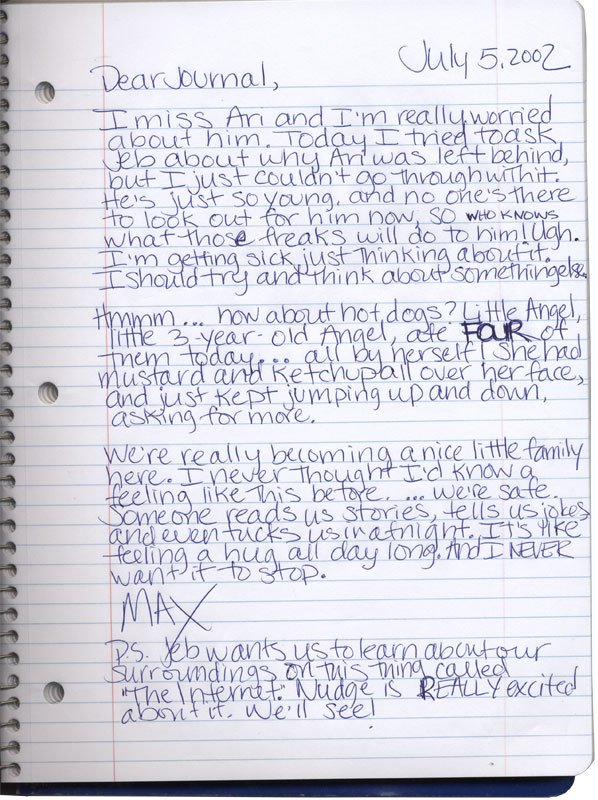 July 5, 2002
Dear Journal,
I miss Ari and I'm really worried
about him. Today I tried to ask
Jeb about why Ari was left behind,
but I just couldn't go through with it.
He's just so young, and no one's there
to look out for him now, so WHO KNOWS
what those freaks will do to him! Ugh.
I'm getting sick just thinking about it.
I should try and think about something else.
Hmmm... how about hot dogs? Little Angel,
little 3-year-old Angel, ate FOUR of
them today... all by herself! She had
mustard and ketchup all over her face,
and just kept jumping up and down,
asking for more.
We're really becoming a nice little family
here. I never thought I'd know a
feeling like this before. ... we're safe.
Someone reads us stories, tells us jokes
and even tucks us in at night. It's like
feeling a hug all day long. And I NEVER
want it to stop.
MAX
P.S. Jeb wants us to learn about our
surroundings on this thing called
"The Internet." Nudge is REALLY excited
about it. We'll see!